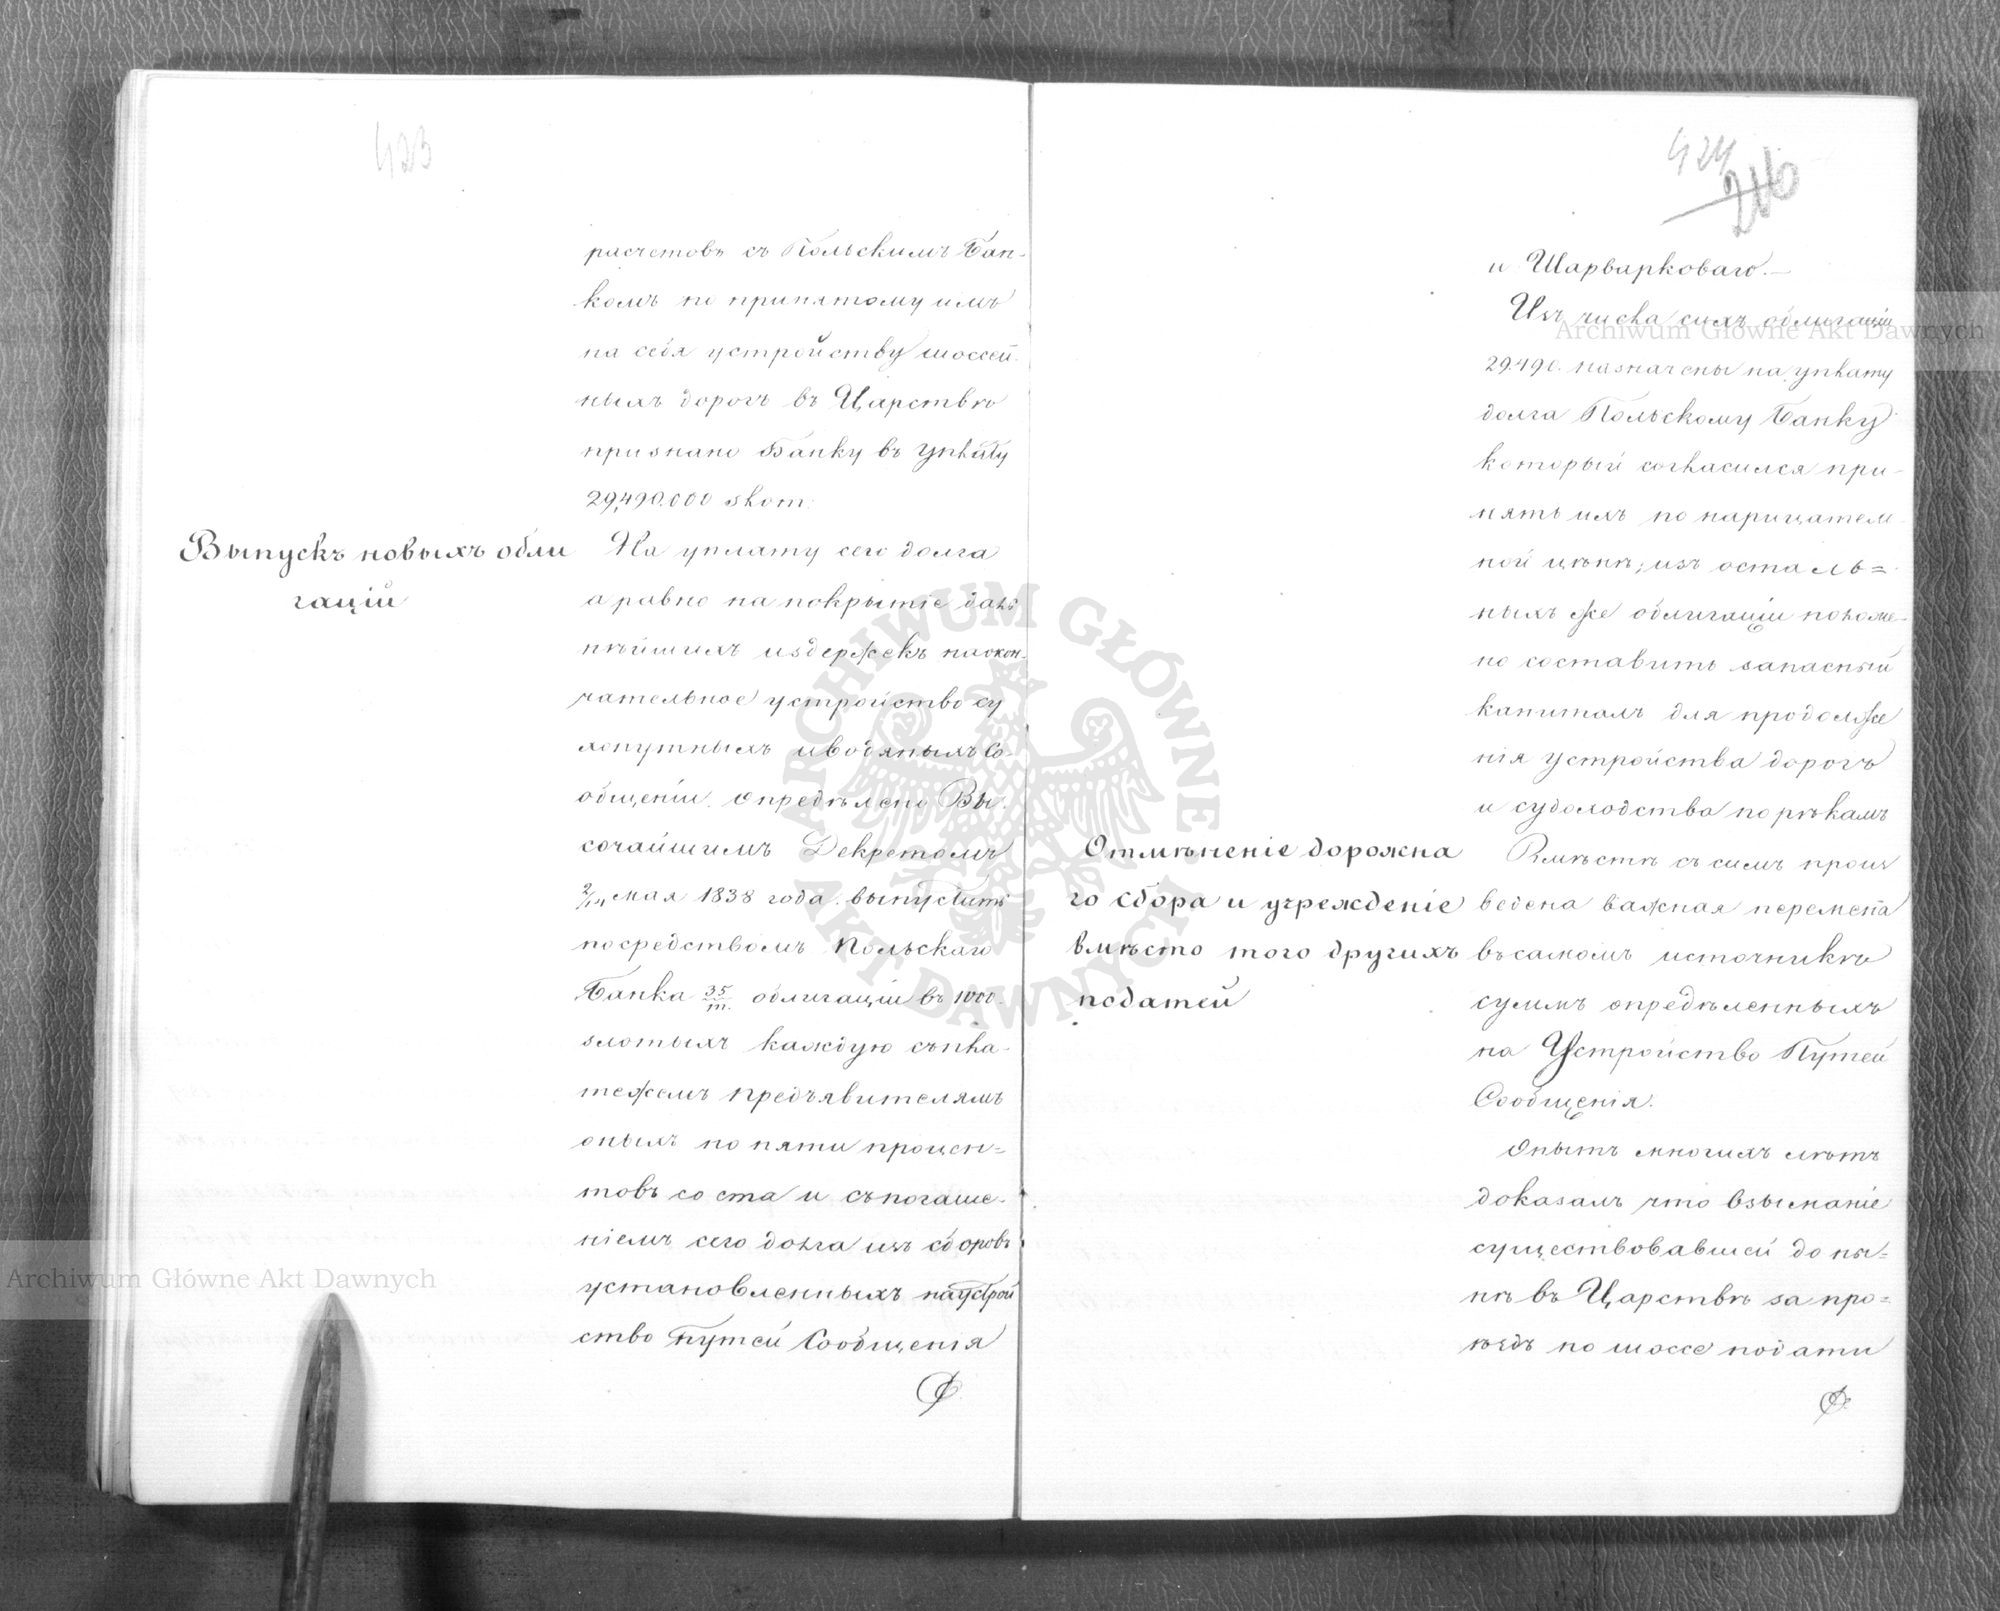 423
расчетовъ съ Польскимъ Бан-
комъ по принятому имъ
на себя устройству шоссей-
ныхъ дорогъ въ Царствѣ
признано Банку въ уплату
29,490.000 злот:
Выпускъ новыхъ обли
гацій
На уплату сего долга
а равно на покрытіе даль
нѣйшихъ издержекъ на окон-
чательное устройство су
хопутныхъ и водяныхъ Со-
общеній. опредѣлено Вы-
сочайшимъ Декретомъ
2/14 мая 1838 года. выпустить
посредствомъ Польскаго
Банка 35/m. облигацій въ 1000.
злотыхъ каждую съ пла-
тежемъ предъявителямъ
оныхъ по пяти процен=
товъ со ста и съ погаше-
ніемъ сего долга изъ сборовъ
установленныхъ на устрой
ство Путей Сообщенія
424
210
и Шарварковаго.—
Изъ числа сихъ облигацій
29.490. назначены на уплату
долга Польскому Банку
который согласился при-
нять ихъ по нарицатель-
ной цѣнѣ; изъ осталь=
ныхъ же облигацій положе-
но составить запасный
капиталъ для продолже
нія устройства дорогъ
и судоходства по рѣкамъ
Отмѣненіе дорожна
го сбора и учрежденіе
вмѣсто того другихъ
податей
Вмѣстѣ съ симъ произ
ведена важная перемена
въ самомъ источникѣ
суммъ опредѣленныхъ
на Устройство Путей
Сообщенія.
Опытъ многихъ лѣтъ
доказалъ что взыманіе
существовавшей до ны=
нѣ въ Царствѣ за про=
ѣздъ по шоссе подати
Archiwum Główne Akt Dawnych
Archiwum Główne Akt Dawnych
ARCHIWUM GŁÓWNE AKT DAWNYCH